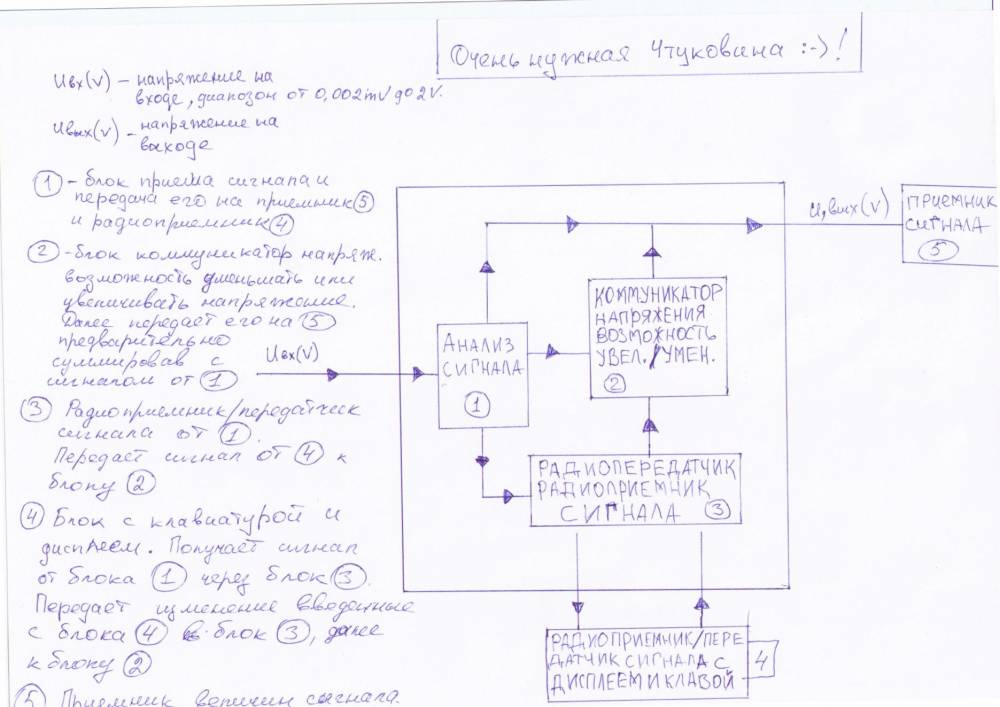 Очень нужная Чтуковина :-)!
Uвх(V) – напряжение на
входе, диапозон от 0,002mV до 2V.
Uвых(V) – напряжение на
выходе
1 – блок приема сигнала и
передача его на приемник 5
и радиоприемник 4
2 – блок коммуникатор напряж.
возможность уменьшать или
увеличивать напряжение.
Далее передает его на 5
предварительно
суммировав с
сигналом от 1
3 Радиоприемник/передатчик
сигнала от 1.
Передаёт сигнал от 4 к
блоку 2
4 Блок с клавиатурой и
дисплеем. Получает сигнал
от блока 1 через блок 3.
Передает изменение введенные
с блока 4 в блок 3, далее
к блоку 2
5 Приемник величин сигнала.
Uвх(V)
АНАЛИЗ
СИГНАЛА
1
КОММУНИКАТОР
НАПРЯЖЕНИЯ
ВОЗМОЖНОСТЬ
УВЕЛ./УМЕН.
2
РАДИОПЕРЕДАТЧИК
РАДИОПРИЕМНИК
СИГНАЛА 3
U,вых(V)
ПРИЕМНИК
СИГНАЛА
5
РАДИОПРИЕМНИК/ПЕРЕ
ДАТЧИК СИГНАЛА С
ДИСПЛЕЕМ И КЛАВОЙ
4